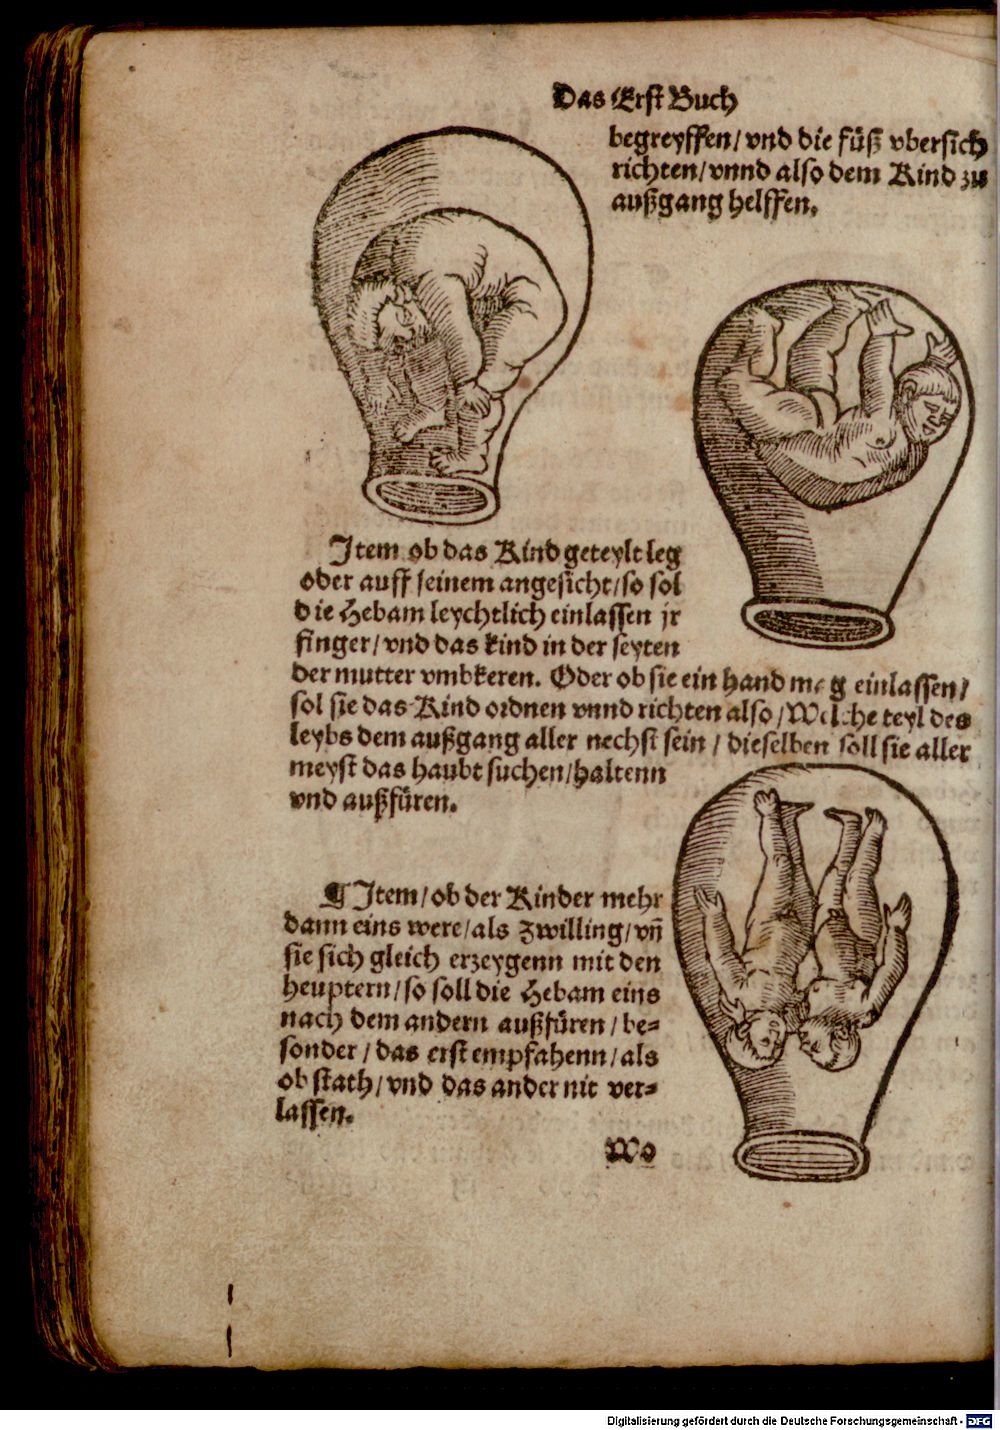 Das Erst Buch
begreyffen/ vnd die füß vbersich
richten/ vnnd also dem Kind zu
außgang helffen.
Item ob das Kind geteylt leg
oder auff seinem angesicht/ so sol
die Hebam leychtlich einlassen jr
finger/ vnd das kind in der seyten
der mutter vmbkeren. Oder ob sie ein hand mag einlassen/
sol sie das Kind ordnen vnnd richten also/ Welche teyl des
leybs dem außgang aller nechst sein / dieselben soll sie aller
meyst das haubt suchen/ haltenn
vnd außfüren.
¶ Item/ ob der Kinder mehr
dann eins were/ als zwilling/ vn̄
sie sich gleich erzeygenn mit den
heuptern/ so soll die Hebam eins
nach dem andern außfüren / be=
sonder / das erst empfahenn/ als
ob stath/ vnd das ander nit ver=
lassen.
Wo
Digitalisierung gefördert durch die Deutsche Forschungsgemeinschaft - DFG